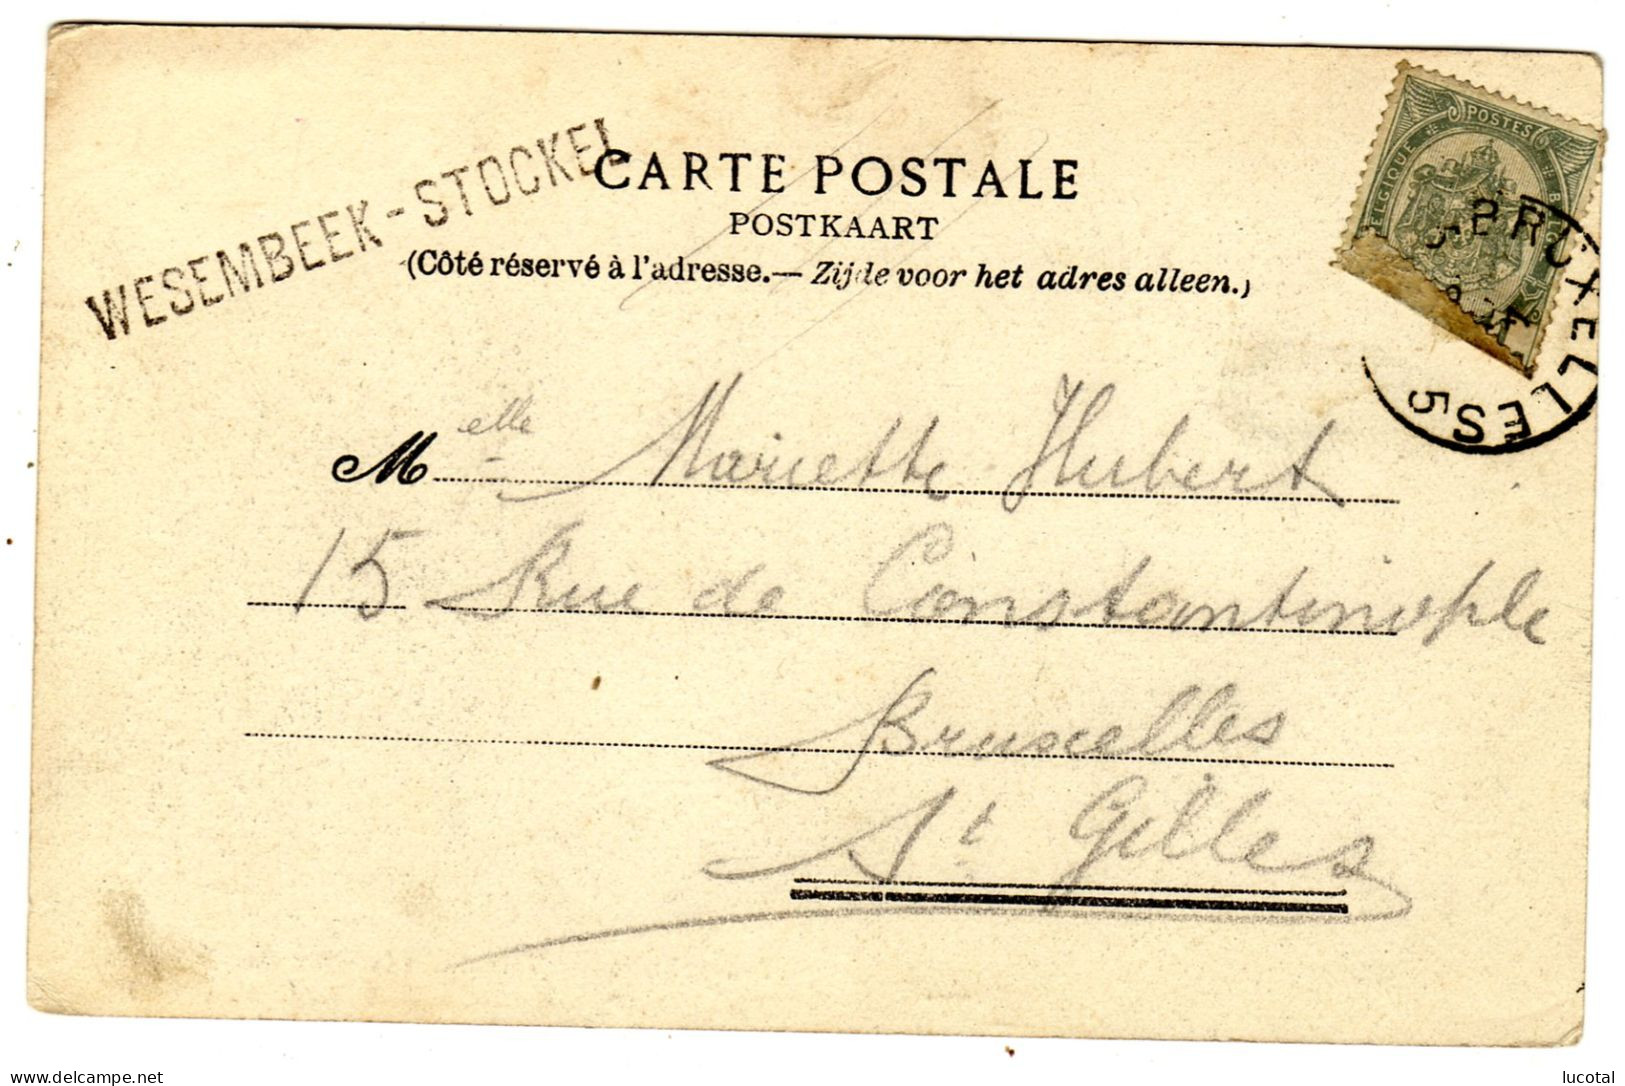 WESEMBEEK-STOCKEL
CARTE POSTALE
POSTKAART
(Côté réservé à l'adresse.— Zijde voor het adres alleen.)
POSTES
BELGIQUE
BRUXELLES 5
Melle Mariette Hubert
15 Rue de Constantinople
Bruxelles
St Gilles
delcampe.net
lucotal